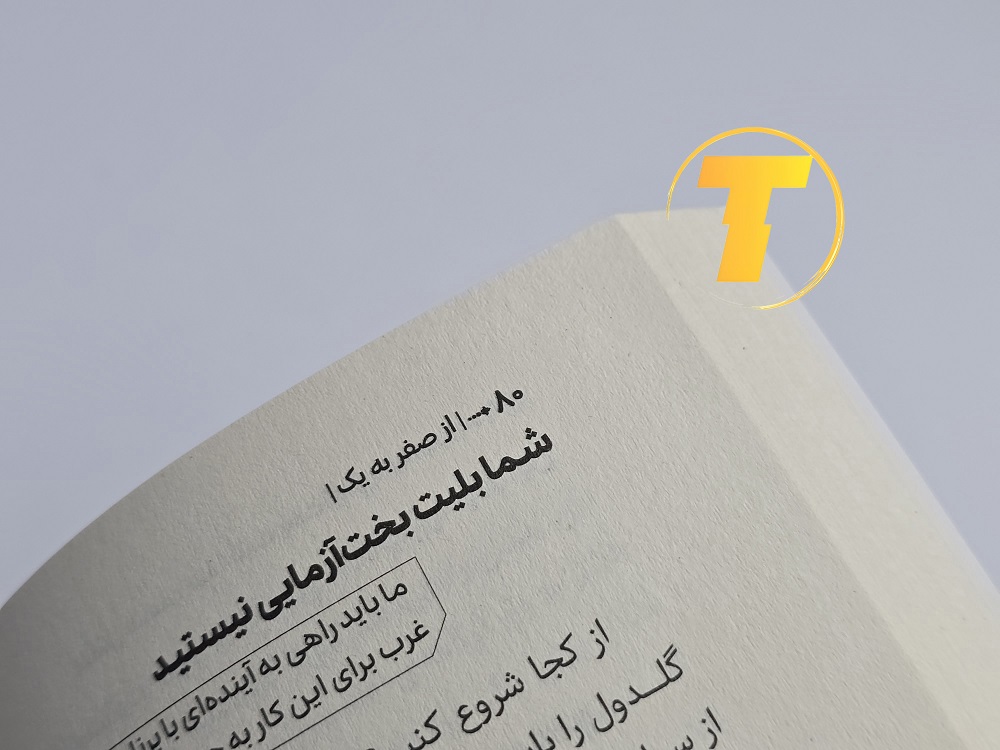 T
۸۰ | از صفر به یک |
شما بلیت بخت‌آزمایی نیستید
ما باید راهی به آینده‌ای با
غرب برای این کار به
از کجا شروع
گلـدول را
از